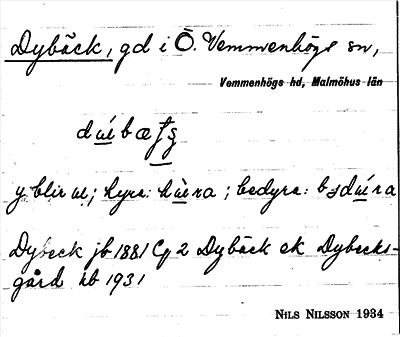 Dybäck, gd i Ö. Vemmenhögs sn,
Vemmenhögs hd, Malmöhus län
y blir ui; hyra: hùira; bedyra: bədúira
Dybeck jb 1881 Cg 2 Dybäck ek Dybecks-
gård kb 1931
NILS NILSSON 1934